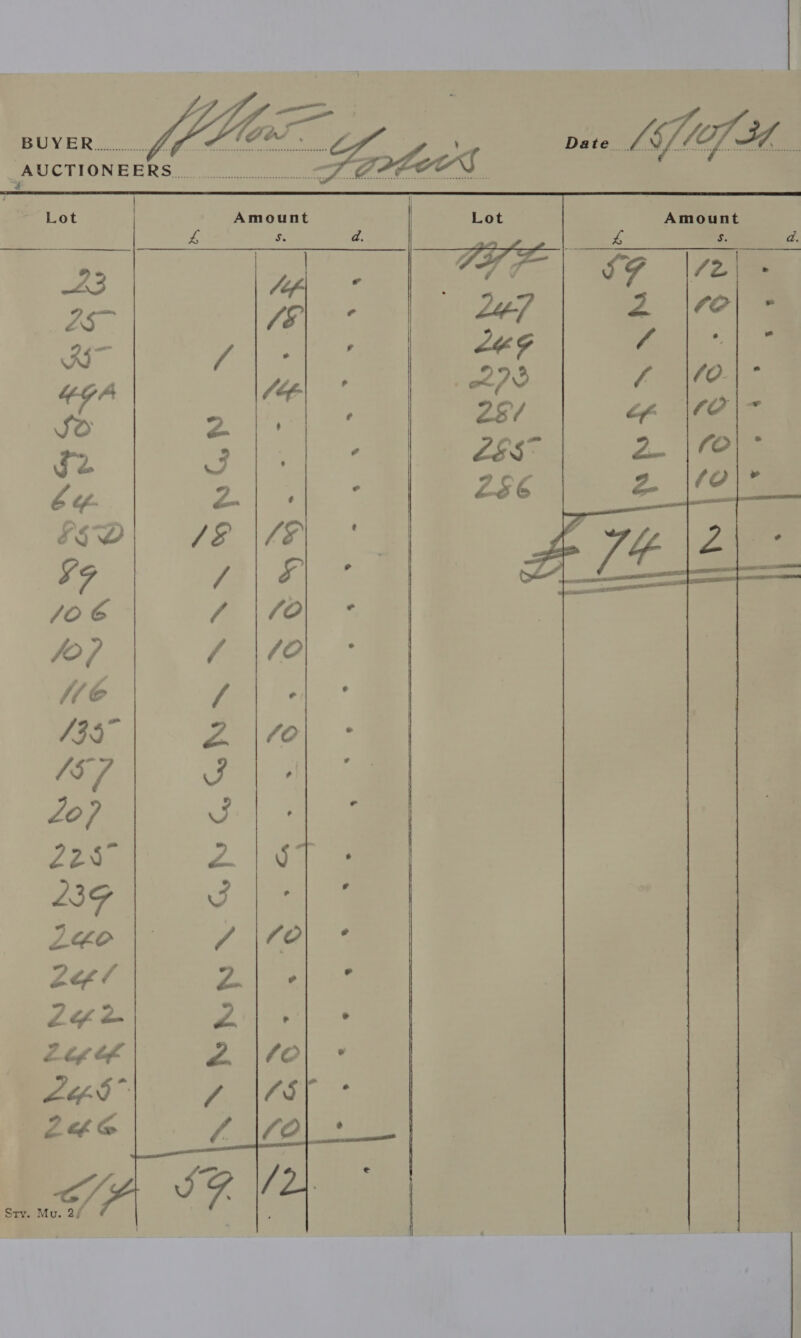 BUYER
Date
AUCTIONEERS Foster's
Lot Amount Lot Amount
£ s. d. £ s. d.
23 14 •
25 18 •
35 1 • •
49A 14 •
50 2 • •
52 3 • •
64 2 • •
85D 18 18 •
89 1 8 •
106 1 10 •
107 1 10 •
116 1 • •
135 2 10 •
157 3 • •
207 3 • •
225 2 5 •
239 3 • •
240 1 10 •
241 2 • •
242 2 • •
244 2 10 •
245 1 15 •
246 1 10 •
C/F 59 12 •
59 12 •
247 2 10 •
249 1 • •
273 1 10 •
281 4 10 •
285 2 10 •
286 2 10 •
£ 74 2 •
Sty. Mu. 2/